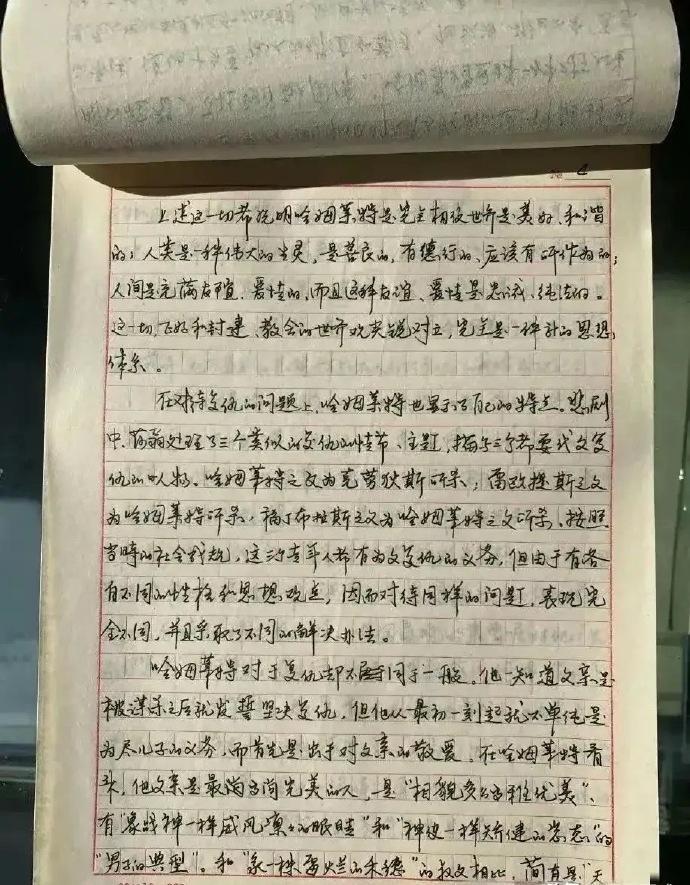 4
上述这一切都说明哈姆莱特是完全相信世界是美好、和谐
的；人类是一种伟大的生灵，是善良的，有德行的、应该有所作为的；
人间是充满友谊、爱情的，而且这种友谊、爱情是忠诚、纯洁的。
这一切，正好和封建、教会的世界观尖锐对立，完全是一种新的思想
体系。
在对待复仇的问题上，哈姆莱特也显示了自己的特点。悲剧
中，莎翁处理了三个类似的复仇的情节、主题，描写三个都要代父复
仇的人物。哈姆莱特之父为克劳狄斯所杀；雷欧提斯之父
为哈姆莱特所杀，福丁布拉斯之父为哈姆莱特之父所杀。按照
当时的社会成规，这三个青年人都有为父复仇的义务，但由于有各
自不同的性格和思想观点，因而对待同样的问题，表现完
全不同，并且采取了不同的解决办法。
哈姆莱特对于复仇却不同于一般。他一知道父亲是
被谋杀之后就发誓坚决复仇，但他从最初一刻起就不单纯是
为尽儿子的义务，而首先是出于对父亲的敬爱。在哈姆莱特看
来，他父亲是最高尚完美的人，是“相貌多么高雅优美”、
有“象战神一样威风凛凛的眼睛”和“神使一样矫健的姿态”的
“男子的典型”。和“象一株霉烂的禾穗”的叔父相比，简直是“天